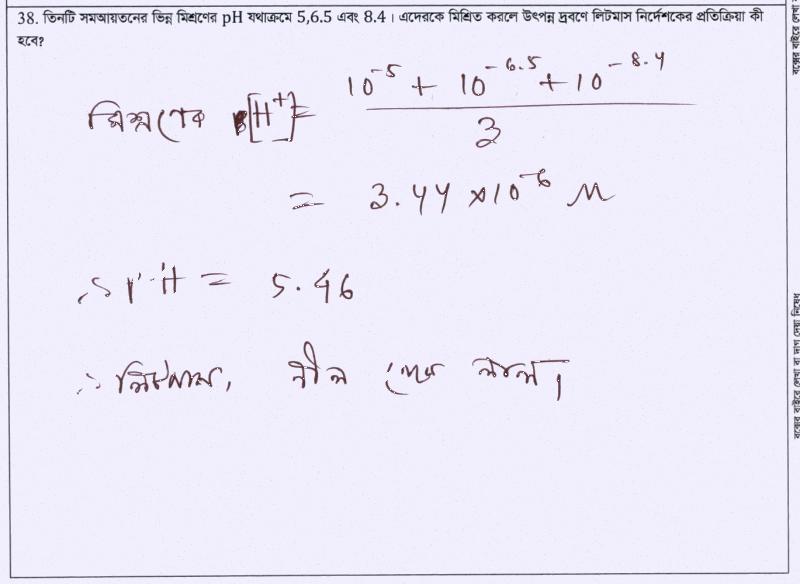 38. তিনটি সমআয়তনের ভিন্ন মিশ্রণের pH যথাক্রমে 5,6.5 এবং 8.4। এদেরকে মিশ্রিত করলে উৎপন্ন দ্রবণে লিটমাস নির্দেশকের প্রতিক্রিয়া কী
হবে?
মিশ্রণের [H⁺] = (10⁻⁵ + 10⁻⁶·⁵ + 10⁻⁸·⁴) / 3
= 3.44 × 10⁻⁶ M
∴ pH = 5.46
∴ লিটমাস, নীল থেকে লাল।